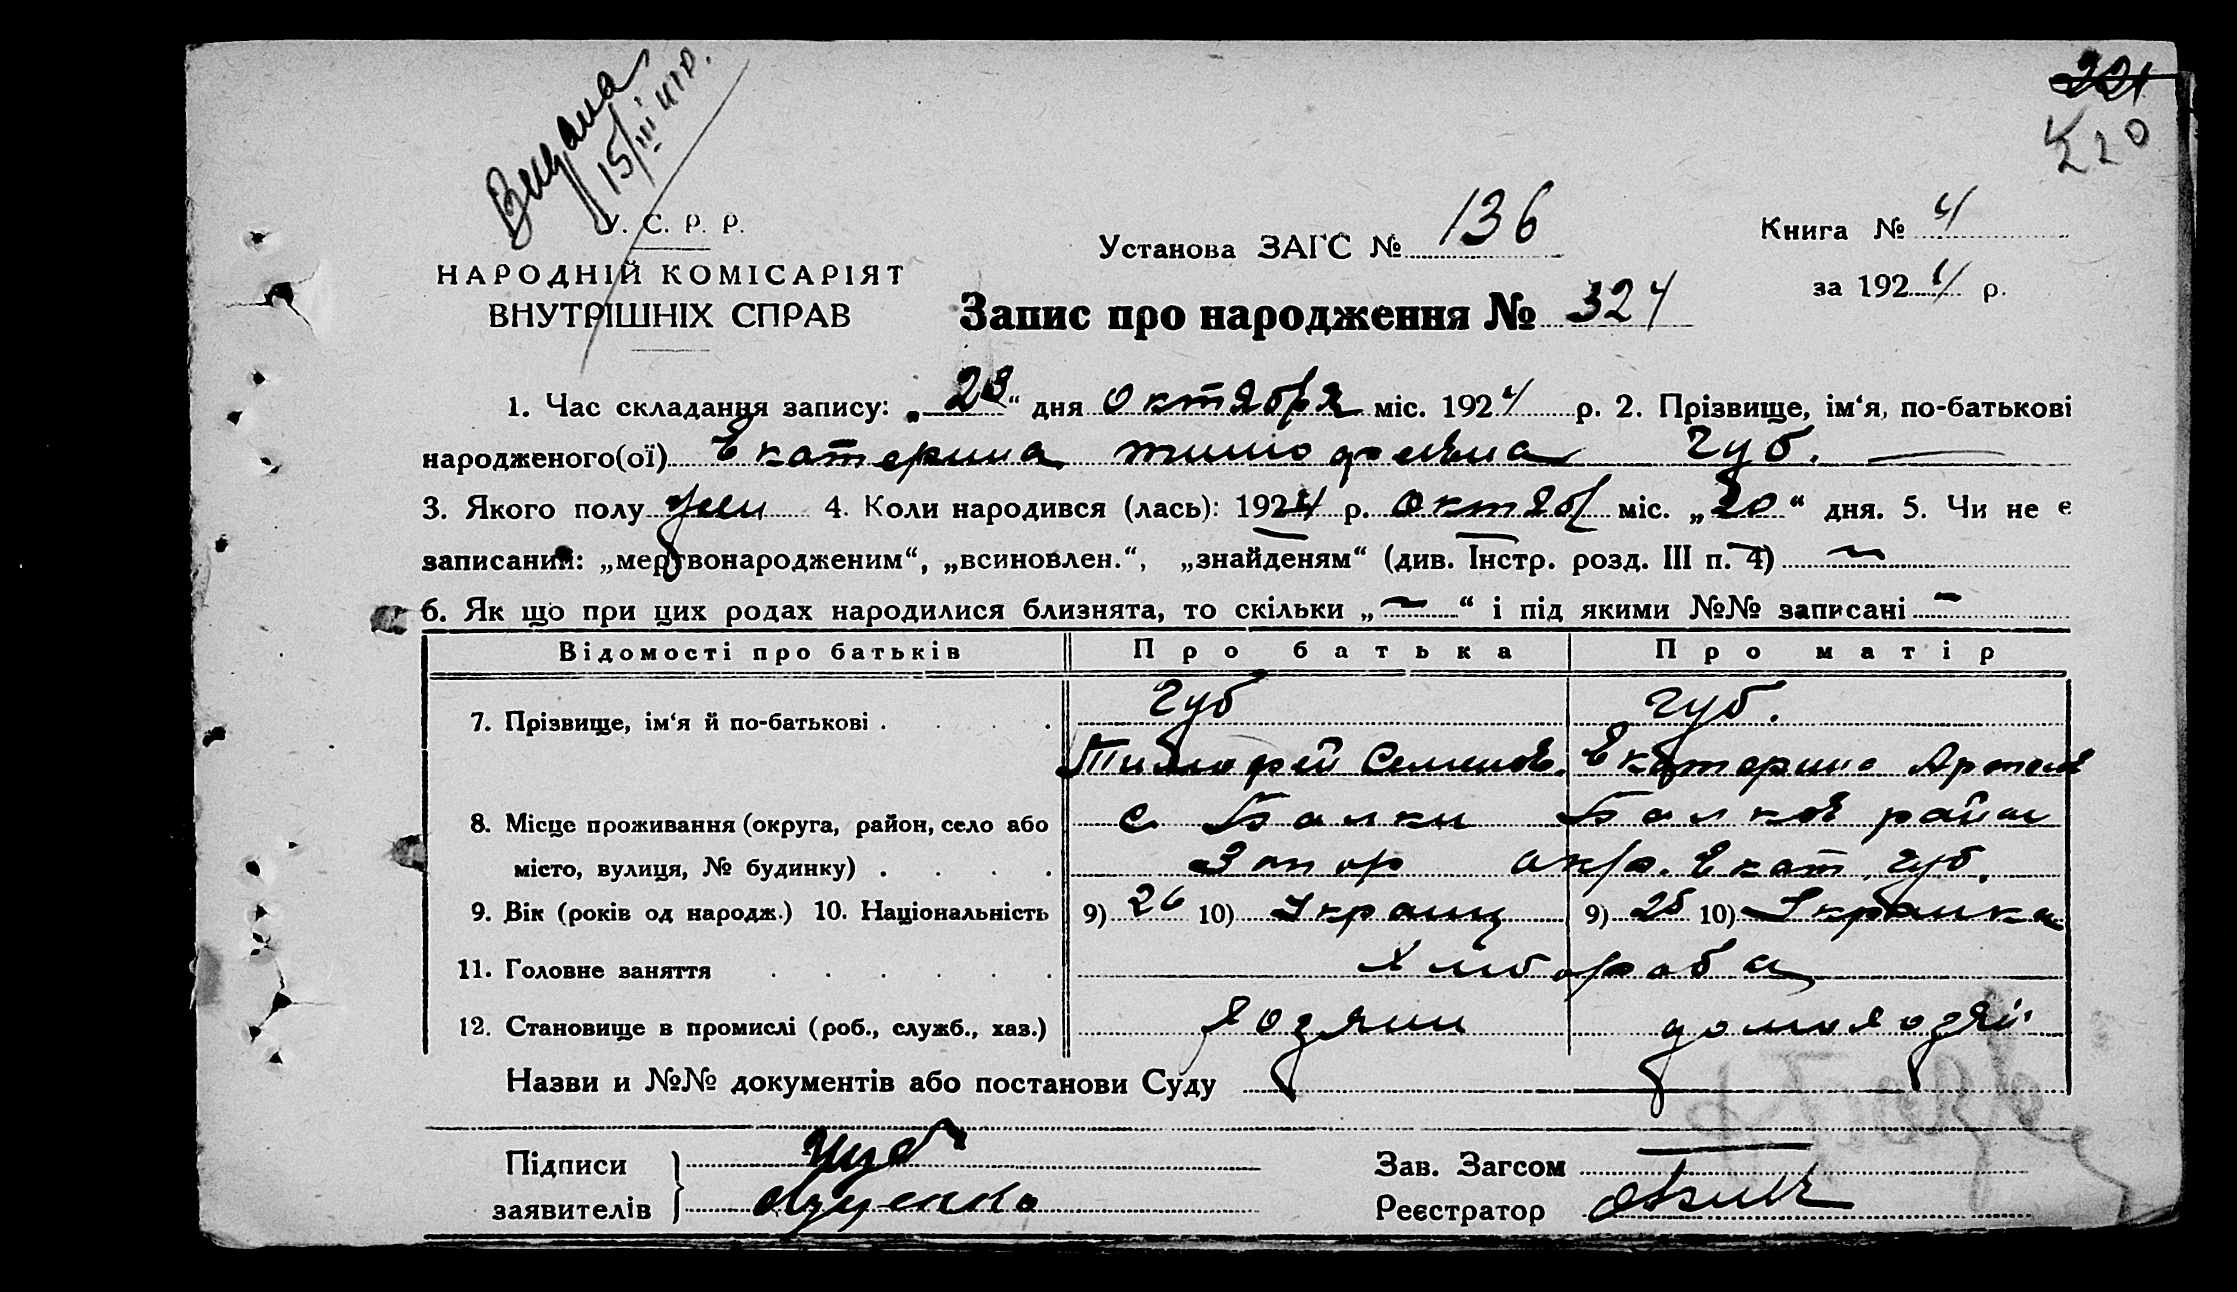 Видана
15/III 41 р.
221
220
У. С. Р. Р.
НАРОДНІЙ КОМІСАРІЯТ
ВНУТРІШНІХ СПРАВ
Установа ЗАГС № 136
Книга № 4
за 1924 р.
Запис про народження № 324
1. Час складання запису: „23“ дня октября міс. 1924 р. 2. Прізвище, ім‘я, по-батькові
народженого(ої) Екатерина тимофеевна Чуб.
3. Якого полу жен 4. Коли народився (лась): 1924 р. октяб міс. „20“ дня. 5. Чи не є
записаний: „мертвонародженим“, „всиновлен.“, „знайденям“ (див. Інстр. розд. III п. 4) —
6. Як що при цих родах народилися близнята, то скільки „—“ і під якими №№ записані —
Відомості про батьків Про батька Про матір
7. Прізвище, ім‘я й по-батькові . . . . Чуб Чуб.
Тимофей Семенов. Екатерина Артем
8. Місце проживання (округа, район, село або с Балки Балков район
місто, вулиця, № будинку) . . . . Запор окр. Екат. губ.
9. Вік (років од народж.) 10. Національність 9) 26 10) Украинц 9) 25 10) Украинка
11. Головне заняття . . . . . . Хлібороба
12. Становище в промислі (роб., служб., хаз.) хозяин домохозяй
Назви и №№ документів або постанови Суду
Підписи Чуб Зав. Загсом
заявителів Реєстратор